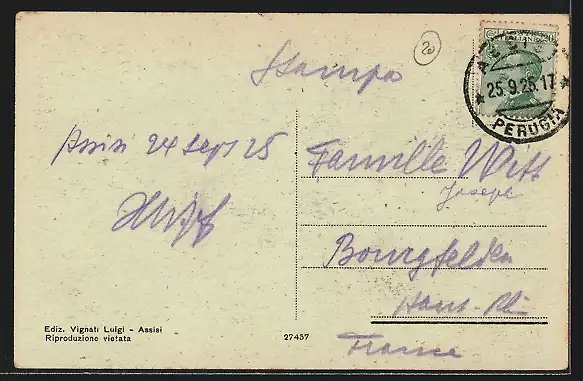 20
ITALIANE
ASSISI
25.9.25.17
PERUGIA
Stampa
Assisi 24 Sept 25
Famille Witt
Joseph
Bourgfelden
Haut-Rh
France
Ediz. Vignati Luigi - Assisi
Riproduzione vietata
27457